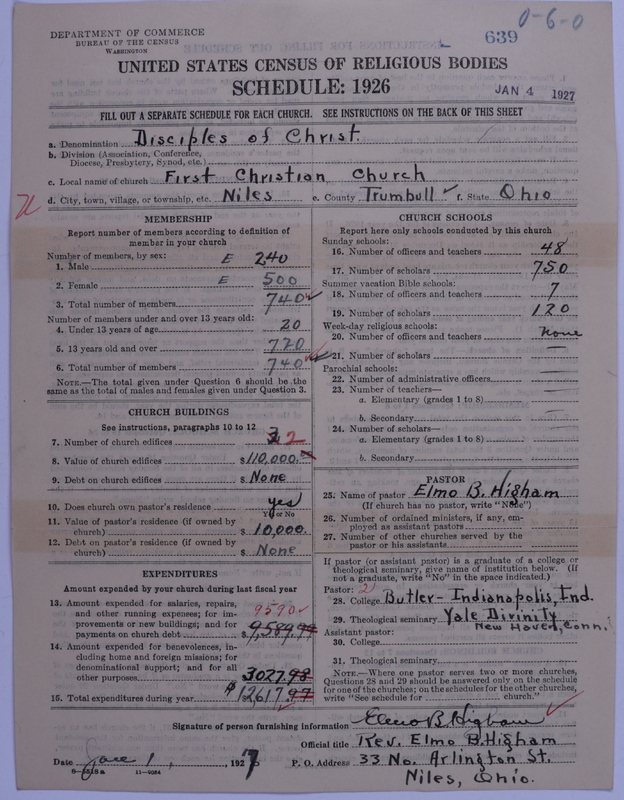 0-6-0
639
DEPARTMENT OF COMMERCE
BUREAU OF THE CENSUS
WASHINGTON
UNITED STATES CENSUS OF RELIGIOUS BODIES
SCHEDULE: 1926
JAN 4 1927
FILL OUT A SEPARATE SCHEDULE FOR EACH CHURCH. SEE INSTRUCTIONS ON THE BACK OF THIS SHEET
a. Denomination Disciples of Christ.
b. Division (Association, Conference,
Diocese, Presbytery, Synod, etc.)
c. Local name of church First Christian Church
d. City, town, village, or township, etc. Niles e. County Trumbull f. State Ohio
MEMBERSHIP
Report number of members according to definition of
member in your church
Number of members, by sex:
1. Male E 240
2. Female E 500
3. Total number of members 740
Number of members under and over 13 years old:
4. Under 13 years of age 20
5. 13 years old and over 720
6. Total number of members 740
NOTE.—The total given under Question 6 should be the
same as the total of males and females given under Question 3.
CHURCH BUILDINGS
See instructions, paragraphs 10 to 12
7. Number of church edifices 2
8. Value of church edifices $110,000.
9. Debt on church edifices $ None
10. Does church own pastor's residence yes
Yes or No
11. Value of pastor's residence (if owned by
church) $ 10,000.
12. Debt on pastor's residence (if owned by
church) $ None
EXPENDITURES
Amount expended by your church during last fiscal year
13. Amount expended for salaries, repairs,
and other running expenses; for im-
provements or new buildings; and for
payments on church debt 9590 $9,589.99
14. Amount expended for benevolences, in-
cluding home and foreign missions; for
denominational support; and for all
other purposes 3027.98
15. Total expenditures during year $12,617.97
CHURCH SCHOOLS
Report here only schools conducted by this church
Sunday schools:
16. Number of officers and teachers 48
17. Number of scholars 750
Summer vacation Bible schools:
18. Number of officers and teachers 7
19. Number of scholars 120
Week-day religious schools:
20. Number of officers and teachers None
21. Number of scholars —
Parochial schools:
22. Number of administrative officers —
23. Number of teachers—
a. Elementary (grades 1 to 8) —
b. Secondary —
24. Number of scholars—
a. Elementary (grades 1 to 8) —
b. Secondary —
PASTOR
25. Name of pastor Elmo B. Higham
(If church has no pastor, write "None")
26. Number of ordained ministers, if any, em-
ployed as assistant pastors
27. Number of other churches served by the
pastor or his assistants
If pastor (or assistant pastor) is a graduate of a college or
theological seminary, give name of institution below. (If
not a graduate, write "No" in the space indicated.)
Pastor: 2
28. College Butler - Indianapolis, Ind.
29. Theological seminary Yale Divinity
New Haven, Conn.
Assistant pastor:
30. College
31. Theological seminary
NOTE.—Where one pastor serves two or more churches,
Questions 28 and 29 should be answered only on the schedule
for one of the churches; on the schedules for the other churches,
write "See schedule for church."
Signature of person furnishing information Elmo B. Higham
Official title Rev. Elmo B. Higham
Date Jan 1, 1927 P. O. Address 33 No. Arlington St.
8-5518a 11-9024 Niles, Ohio.